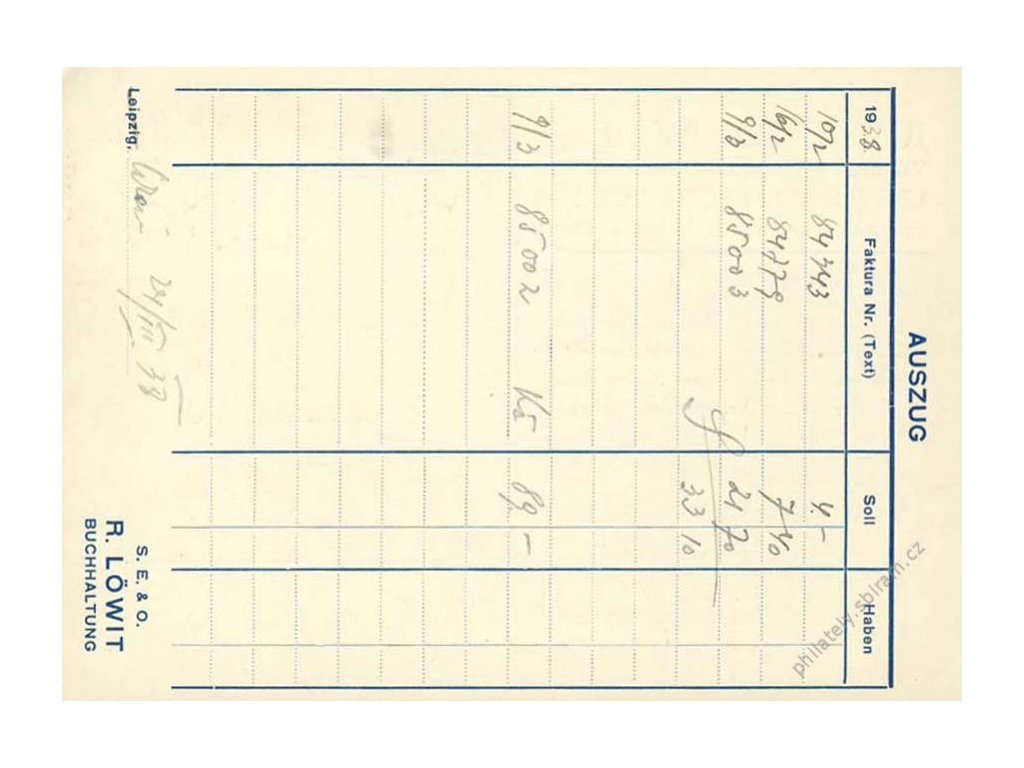 AUSZUG
1938 Faktura Nr. (Text) Soll Haben
10/2 84743 4.–
16/2 84879 7 40
9/3 85003 21 70
33 10
9/3 85002 Kč 89.–
Leipzig, Wien 24/III. 38
S. E. & O.
R. LÖWIT
BUCHHALTUNG
philately.sbiram.cz